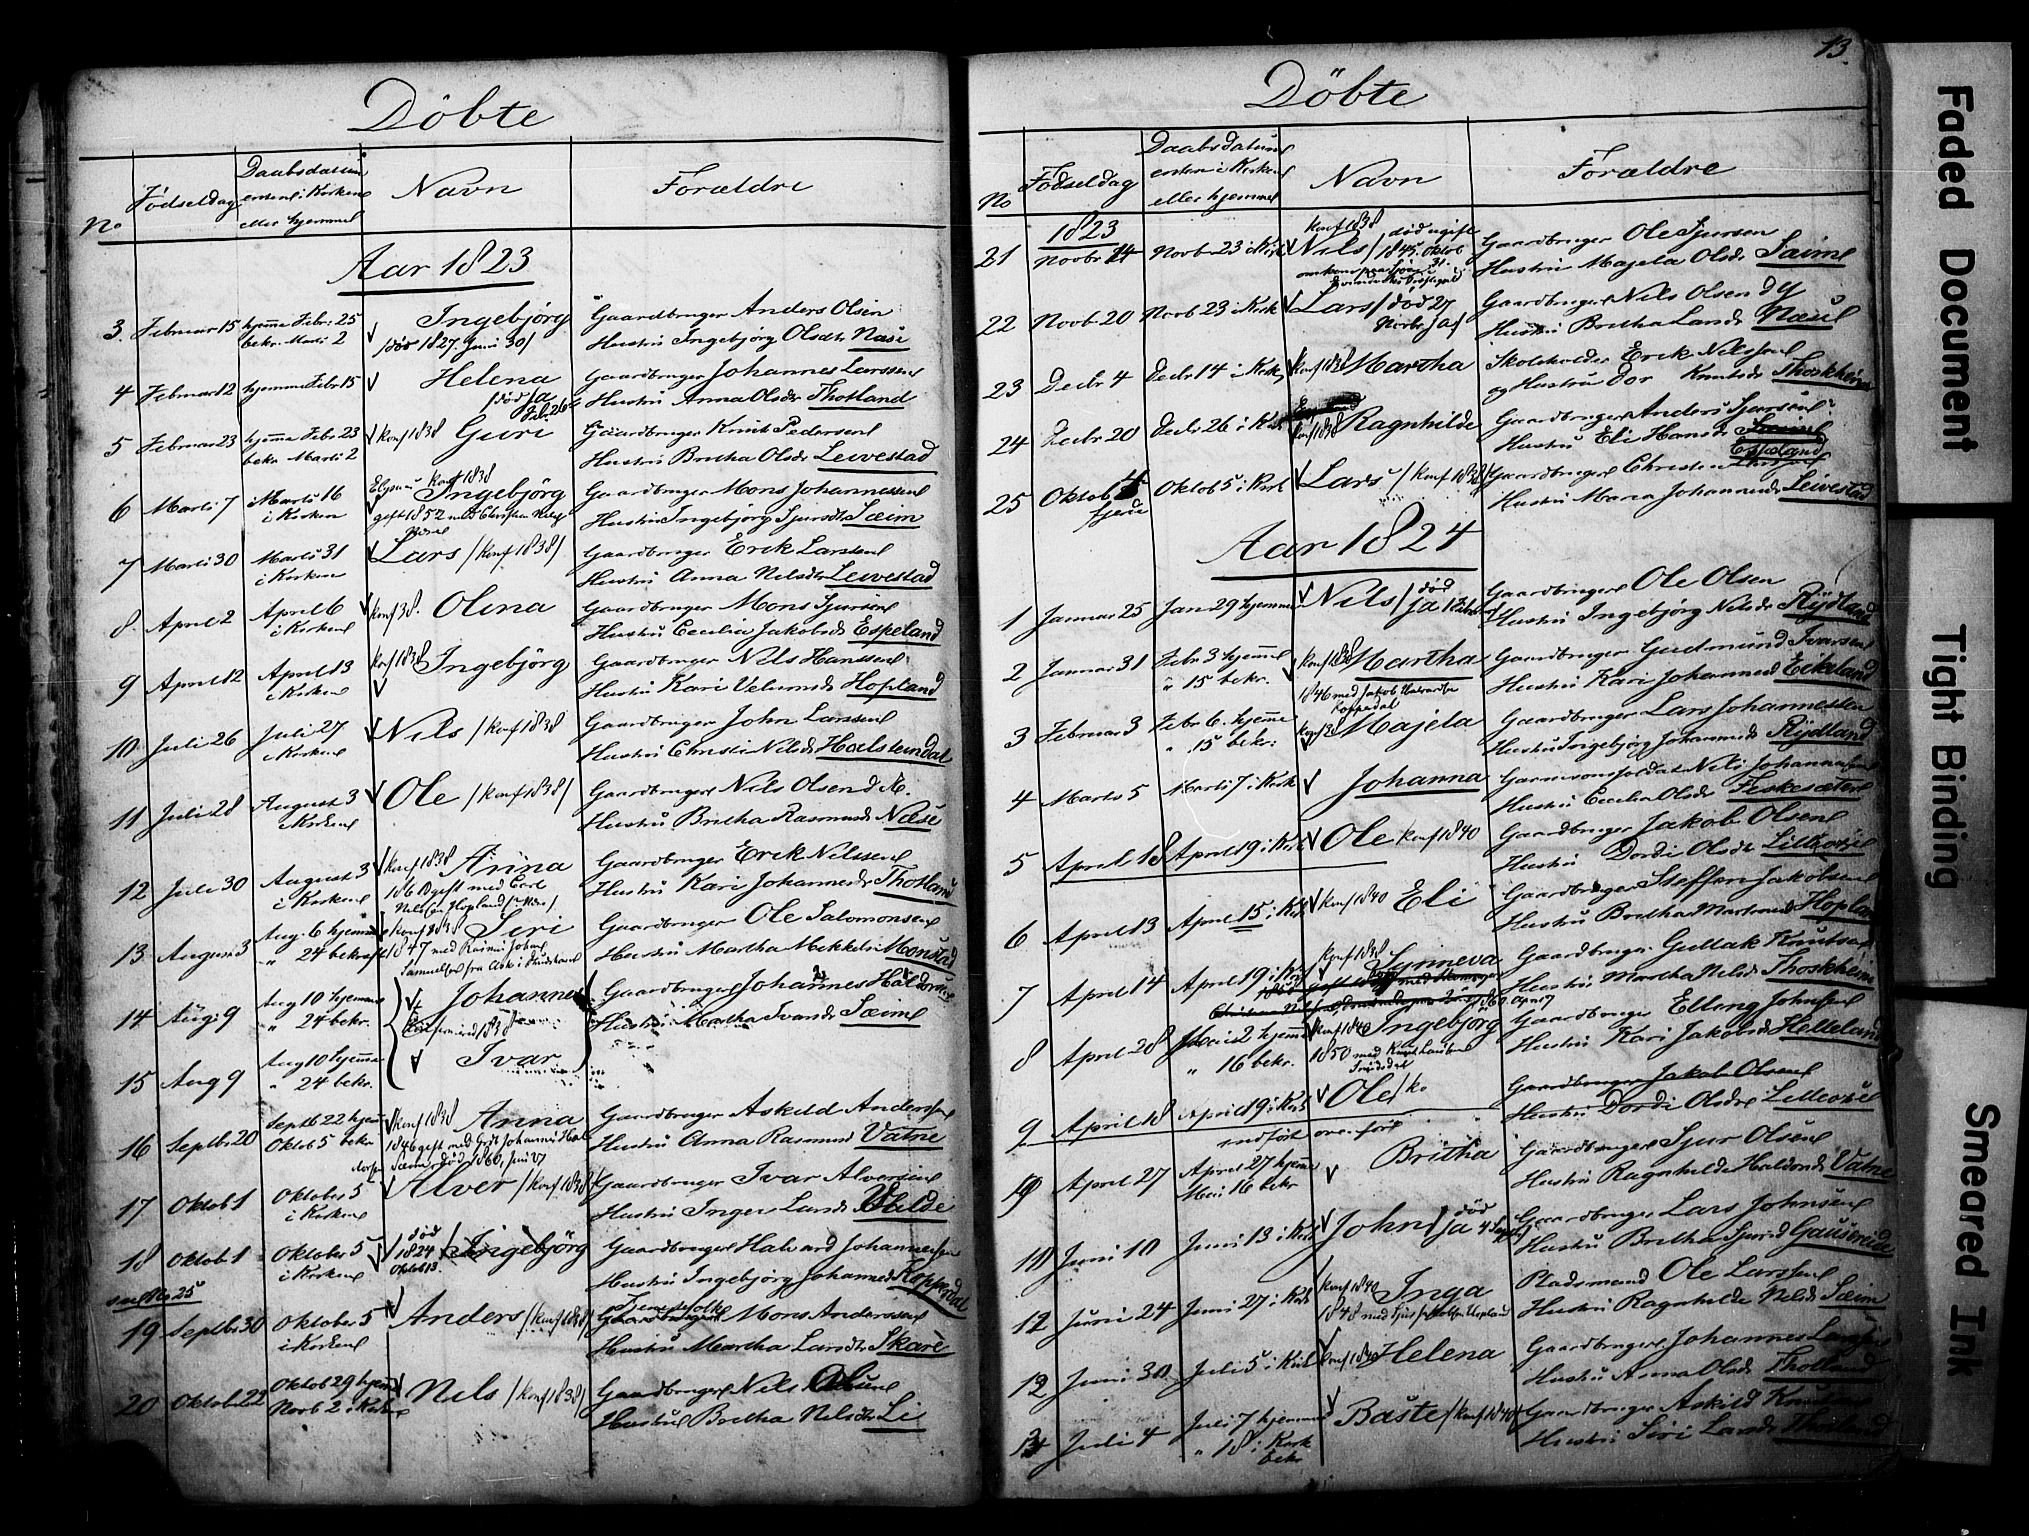 Döbte
No
Födseldag
Daabsdatum
enten i Kirken
eller hjemme
Navn
Forældre
Aar 1823
3. Februar 15 hjeme Febr. 25 Ingebjörg Gaardbruger Anders Olsen
bekr. Marti 2 /död 1827. Juni 30/ Hustru Ingebjörg Olsdtr Næse
4 Februar 12 hjemme Febr 15 Helena Gaardbruger Johannes Larssen
/död ja Feb. 26 Hustru Anna Olsdr Thotland
5 Februar 23 hjeme Febr 23 konf 1838 Guri Gaardbruger Knut Pedersen
bekr Marti 2 Hustru Britha Olsdr Levestad
6 Marti 7 Marti 16 konf 1838 Ingebjörg Gaardbruger Mons Johannessen
i Kirken gift 1852 med Christen Hustru Ingebjörg Sjursdtr Sæim
7 Marti 30 Marti 31 Lars /konf 1838/ Gaardbruger Erik Larssen
i Kirken Hustru Anna Nilsdtr Levestad
8 April 2 April 6 konf 38. Olina Gaardbruger Mons Sjursen
i Kirken Hustru Cecilia Jakobsdr Espeland
9 April 12 April 13 konf 1838 Ingebjörg Gaardbruger Nils Hanssen
i Kirken Hustru Kari Hopland
10 Juli 26 Juli 27 Nils /konf 1838 Gaardbruger John Larssen
i Kirken Hustru Christi Nilsdr Holsteindal
11 Juli 28 August 3 Ole /konf 1838/ Gaardbruger Nils Olsen d. Æ.
i Kirken Hustru Britha Rasmusdr Næse
12 Juli 30 August 3 konf 1838 Anna Gaardbruger Erik Nilssen
i Kirken gift med Hopland Hustru Kari Johannesdr Thotland
13 August 3 Aug. 6 hjemme konf 1838 Siri Gaardbruger Ole Salomonsen
" 24 bekr 1847 med Rasmus Johan Hustru Martha Mikkelsdr Monstad
Samuelsen fra Ask i
14 Aug. 9 Aug 10 hjemme Johannes Gaardbruger Johannes Haldorsen
" 24 bekr. 1838 Hustru Martha Ivarsdr Sæim
15 Aug 9 Aug 10 hjeme Ivar
" 24 bekr.
16 Septbr 20 Septb 22 hjem konf 1838 Anna Gaardbruger Askild Anderssen
Oktob 5 bekr 1846 gift med Johannes Hal Hustru Anna Rasmusd Vatne
dorsen Sæim död 1860, Juni 27
17 Oktob 1 Oktober 5 Alver /konf 1838/ Gaardbruger Ivar Alversen
i Kirken Hustru Inger Larsdr Hilde
18 Oktob 1 Oktober 5 död 1824 Oktob 13. Ingebjörg Gaardbruger Halvard Johannessen
i Kirken Hustru Ingebjörg Johannesd Koppedal
see No 25
Tjenestefolk
19 Septbr 30 Oktober 5 Anders /konf 1838/ Gaardbruger Mons Anderssen
i Kirken Hustru Martha Larsdtr Skare
20 Oktob 22 Oktob 29 hjem Nils /konf 1838/ Gaardbruger Nils Olsen
Novb 2 i Kirken Hustru Britha Nilsdtr Li
13.
Döbte
No
Födseldag
Daabsdatum
enten i Kirken
eller hjemme
Navn
Forældre
1823
21 Novbr 14 Novb 23 i Kirk konf 1838 Nils /död ugift Gaardbruger Ole Sjursen
1845. Oktob 31. Hustru Majela Olsdr Sæim
22 Novb 20 Novb 23 i Kirk Lars /död 27 Gaardbruger Nils Olsen d Y
Novbr /a/ Hustru Britha Larsdr Næse
23 Decbr 4 Decbr 14 i Kirk konf 1838 Martha Skoleholder Erik Nilssen
og Hustru Dor Knutsdr Thoskheim
24 Decbr 20 Decbr 26 i Kirk konf 1838 Ragnhilde Gaardbruger Anders Sjursen
Hustru Eli Hansdr Sæim Espeland
25 Oktob Oktob 5 i Kirk Lars /konf 1838/ Gaardbruger Christen
Hustru Maria Johannesdr Levestad
Aar 1824
1 Januar 25 Jan 29 hjemme Nils /död ja Gaardbruger Ole Olsen
Hustru Ingebjörg Nilsdr Rydland
2 Januar 31 Febr 3 hjeme konf 1838 Martha Gaardbruger Gudmund Ivarsen
" 15 bekr. 1846 med Jakob Koppedal Hustru Kari Johannesd Eikeland
3 Februar 3 Febr 6. hjeme Majela Gaardbruger Lars Johannessen
" 15 bekr. Hustru Ingebjörg Johannesdr Rydland
4 Marts 5 Marti 7 i Kirk Johanna Garnisonsoldat Nils Johannessen
Hustru Cecilia Olsdr Fiskesæter
5 April 18 April 19 i Kirk Ole konf 1840 Gaardbruger Jakob Olsen
Hustru Dordi Olsdr
6 April 13 April 15 i Kirk konf 1840 Eli Gaardbruger Steffen Jakobsen
Hustru Britha Hopland
7 April 14 April 19 i Kirk konf 1838 Synneva Gaardbruger Gullak Knutsen
Hustru Martha Nilsdr Thoskheim
8 April 28 Mai 2 hjeme konf 1840 Ingebjörg Gaardbruger Elling Johnsen
" 16 bekr. 1850 med Hustru Kari Jakobsdr Helleland
9 April 18 April 19 i Kirk Ole /ko Gaardbruger Jakob Olsen
indfört ovenfor Hustru Dordi Olsdr
10 April 27 April 27 hjeme Britha Gaardbruger Sjur Olsen
Mai 16 bekr Hustru Ragnhilde Haldorsdr Vatne
11 Juni 10 Juni 13 i Kirk John /död ja Gaardbruger Lars Johnsen
Hustru Britha Sjursd Gaustreide
12 Juni 24 Juni 27 i Kirk konf 1840 Inga Pladsmand Ole Larssen
1848 med Hopland Hustru Ragnhilde Nilsdr Sæim
12 Juni 30 Juli 5 i Kirk konf 1840 Helena Gaardbruger Johannes Larssen
Hustru Anna Olsdr Thotland
13 Juli 4 Juli 7 hjemme Baste /konf 1840/ Gaardbruger Askild Knutsen
" 18 i Kirk bekr Hustru Siri Larsdr Thotland
Faded Document
Tight Binding
Smeared Ink